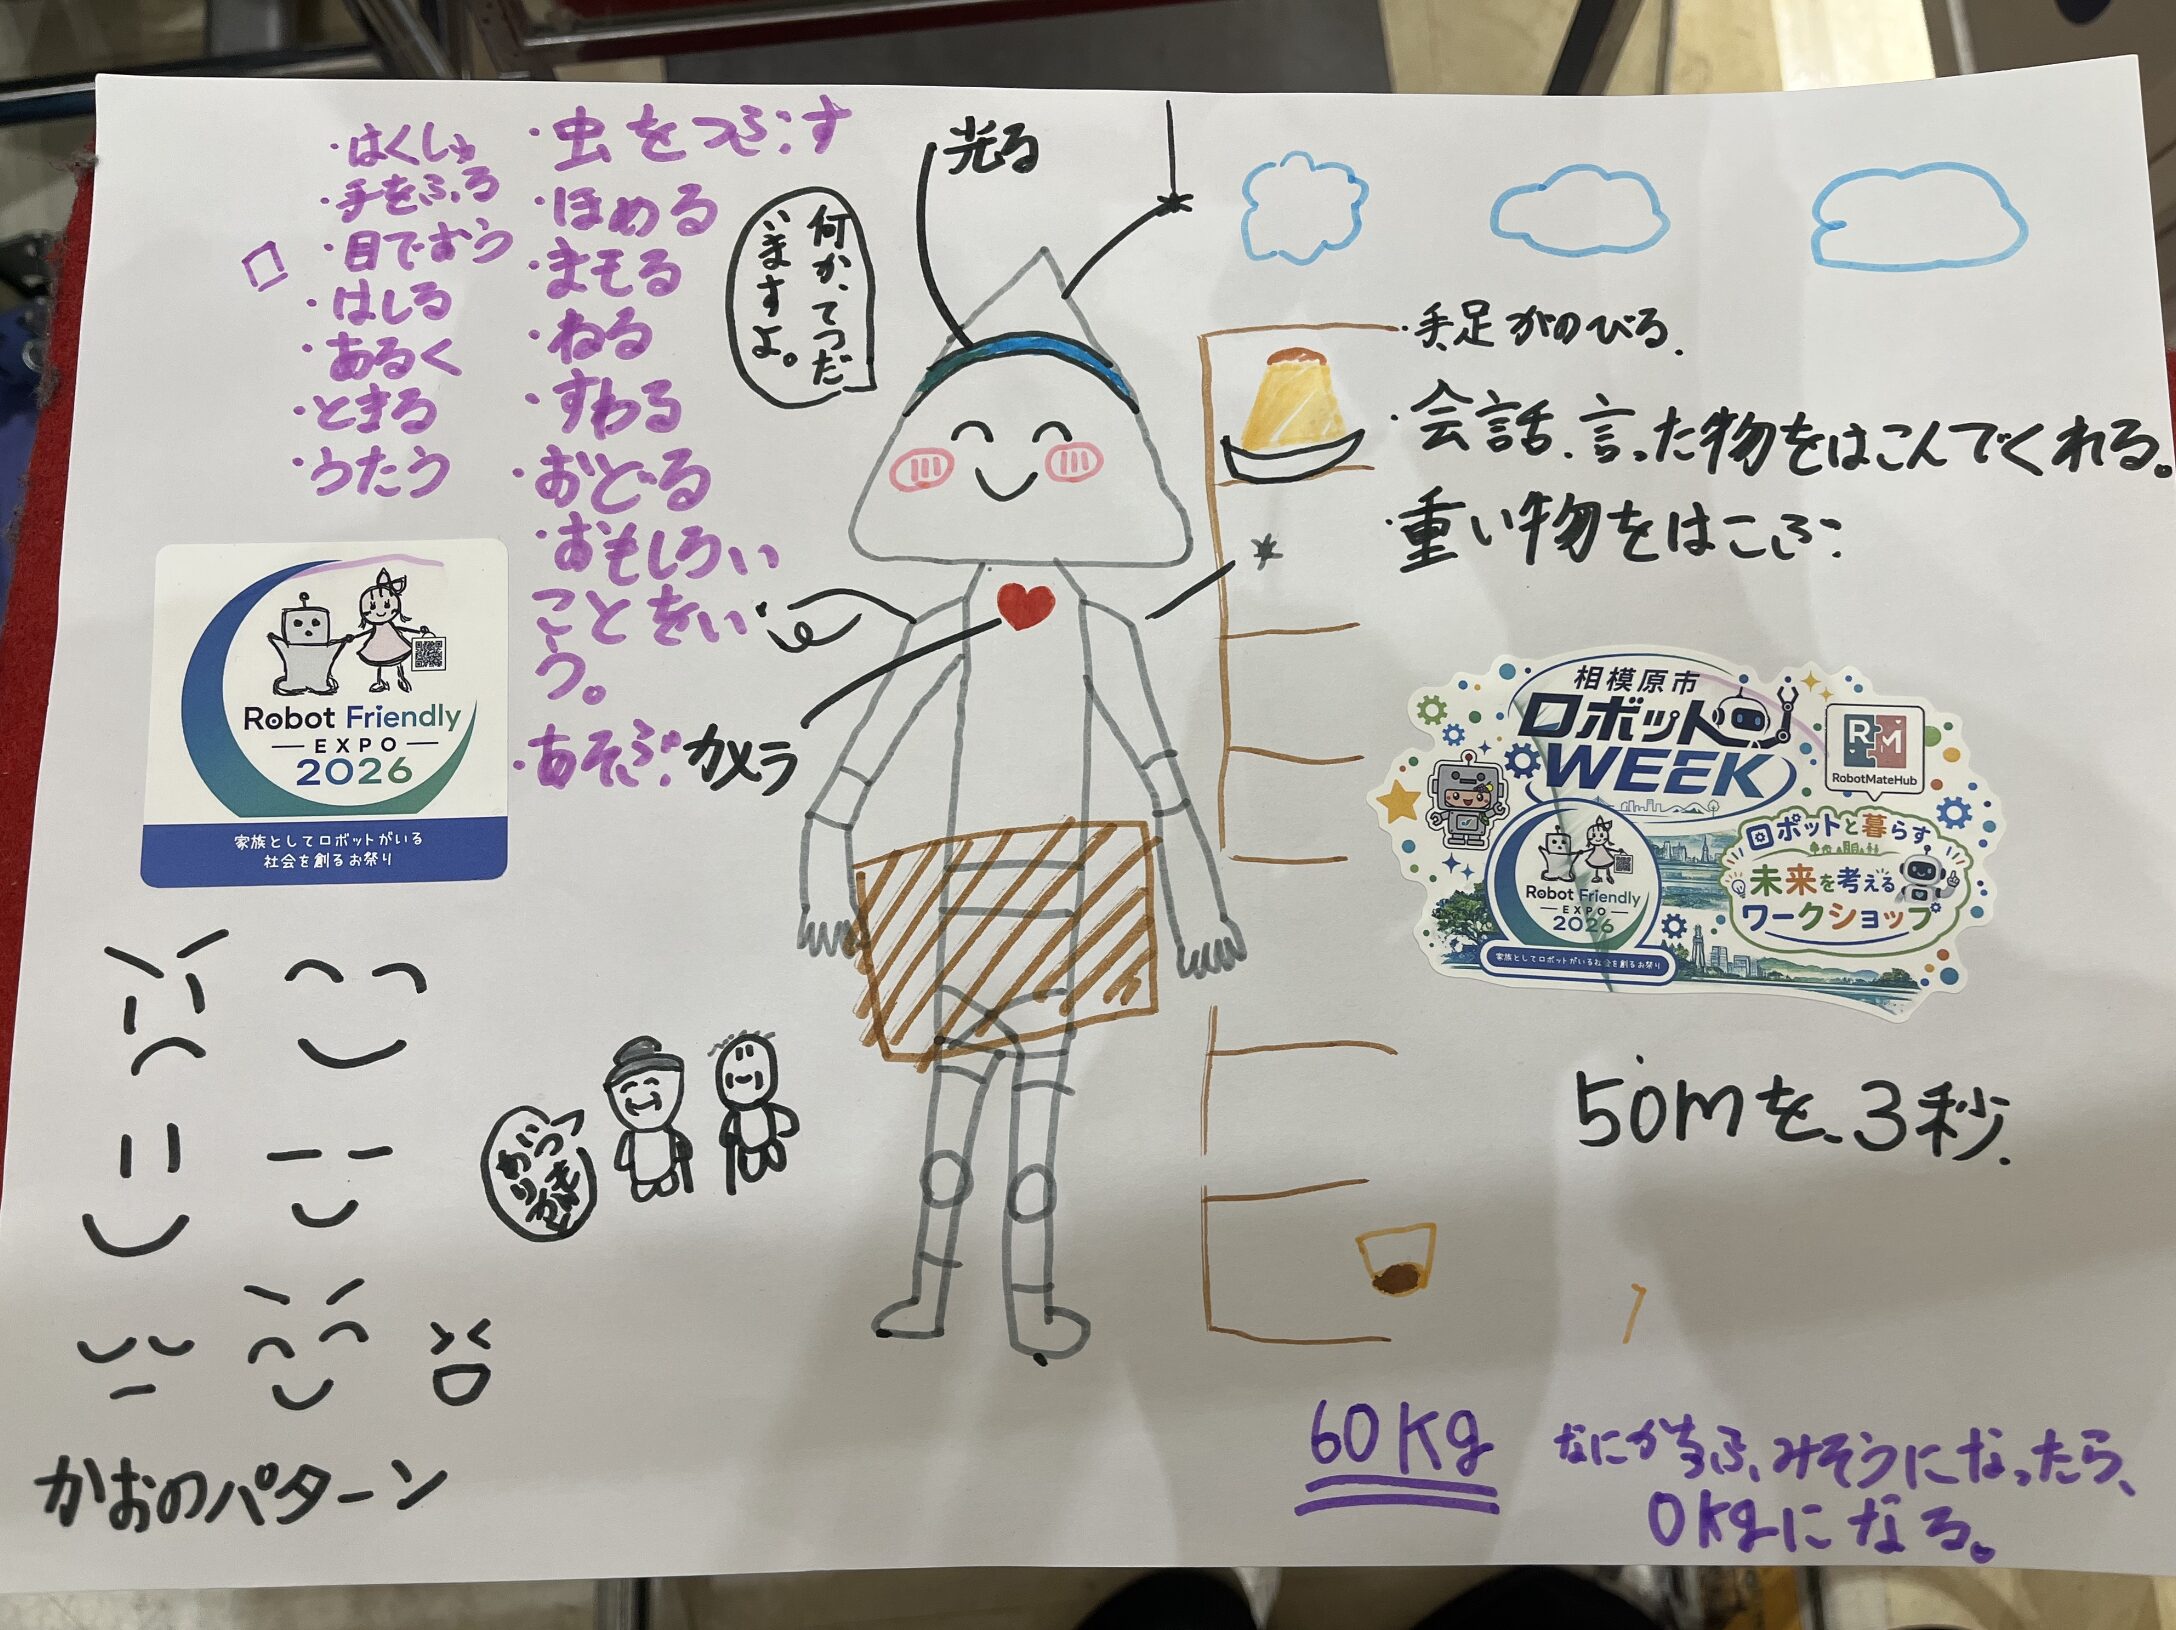 ・はくしゅ
・手をふる
・目でおう
・はしる
・あるく
・とまる
・うたう
・虫をつぶす
・ほめる
・まもる
・ねる
・すわる
・おどる
・おもしろい
ことをい
う。
・あそぶ
光る
何か、てつだ
いますよ。
カメラ
・手足がのびる.
・会話、言った物をはこんでくれる。
・重い物をはこぶ
Robot Friendly
EXPO
2026
家族としてロボットがいる
社会を創るお祭り
相模原市
ロボット
WEEK
RM
RobotMateHub
ロボットと暮らす
未来を考える
ワークショップ
Robot Friendly
EXPO
2026
家族としてロボットがいる社会を創るお祭り
50mを、3秒.
かおのパターン
60Kg
なにかちふ、みそうになったら、
0Kgになる。